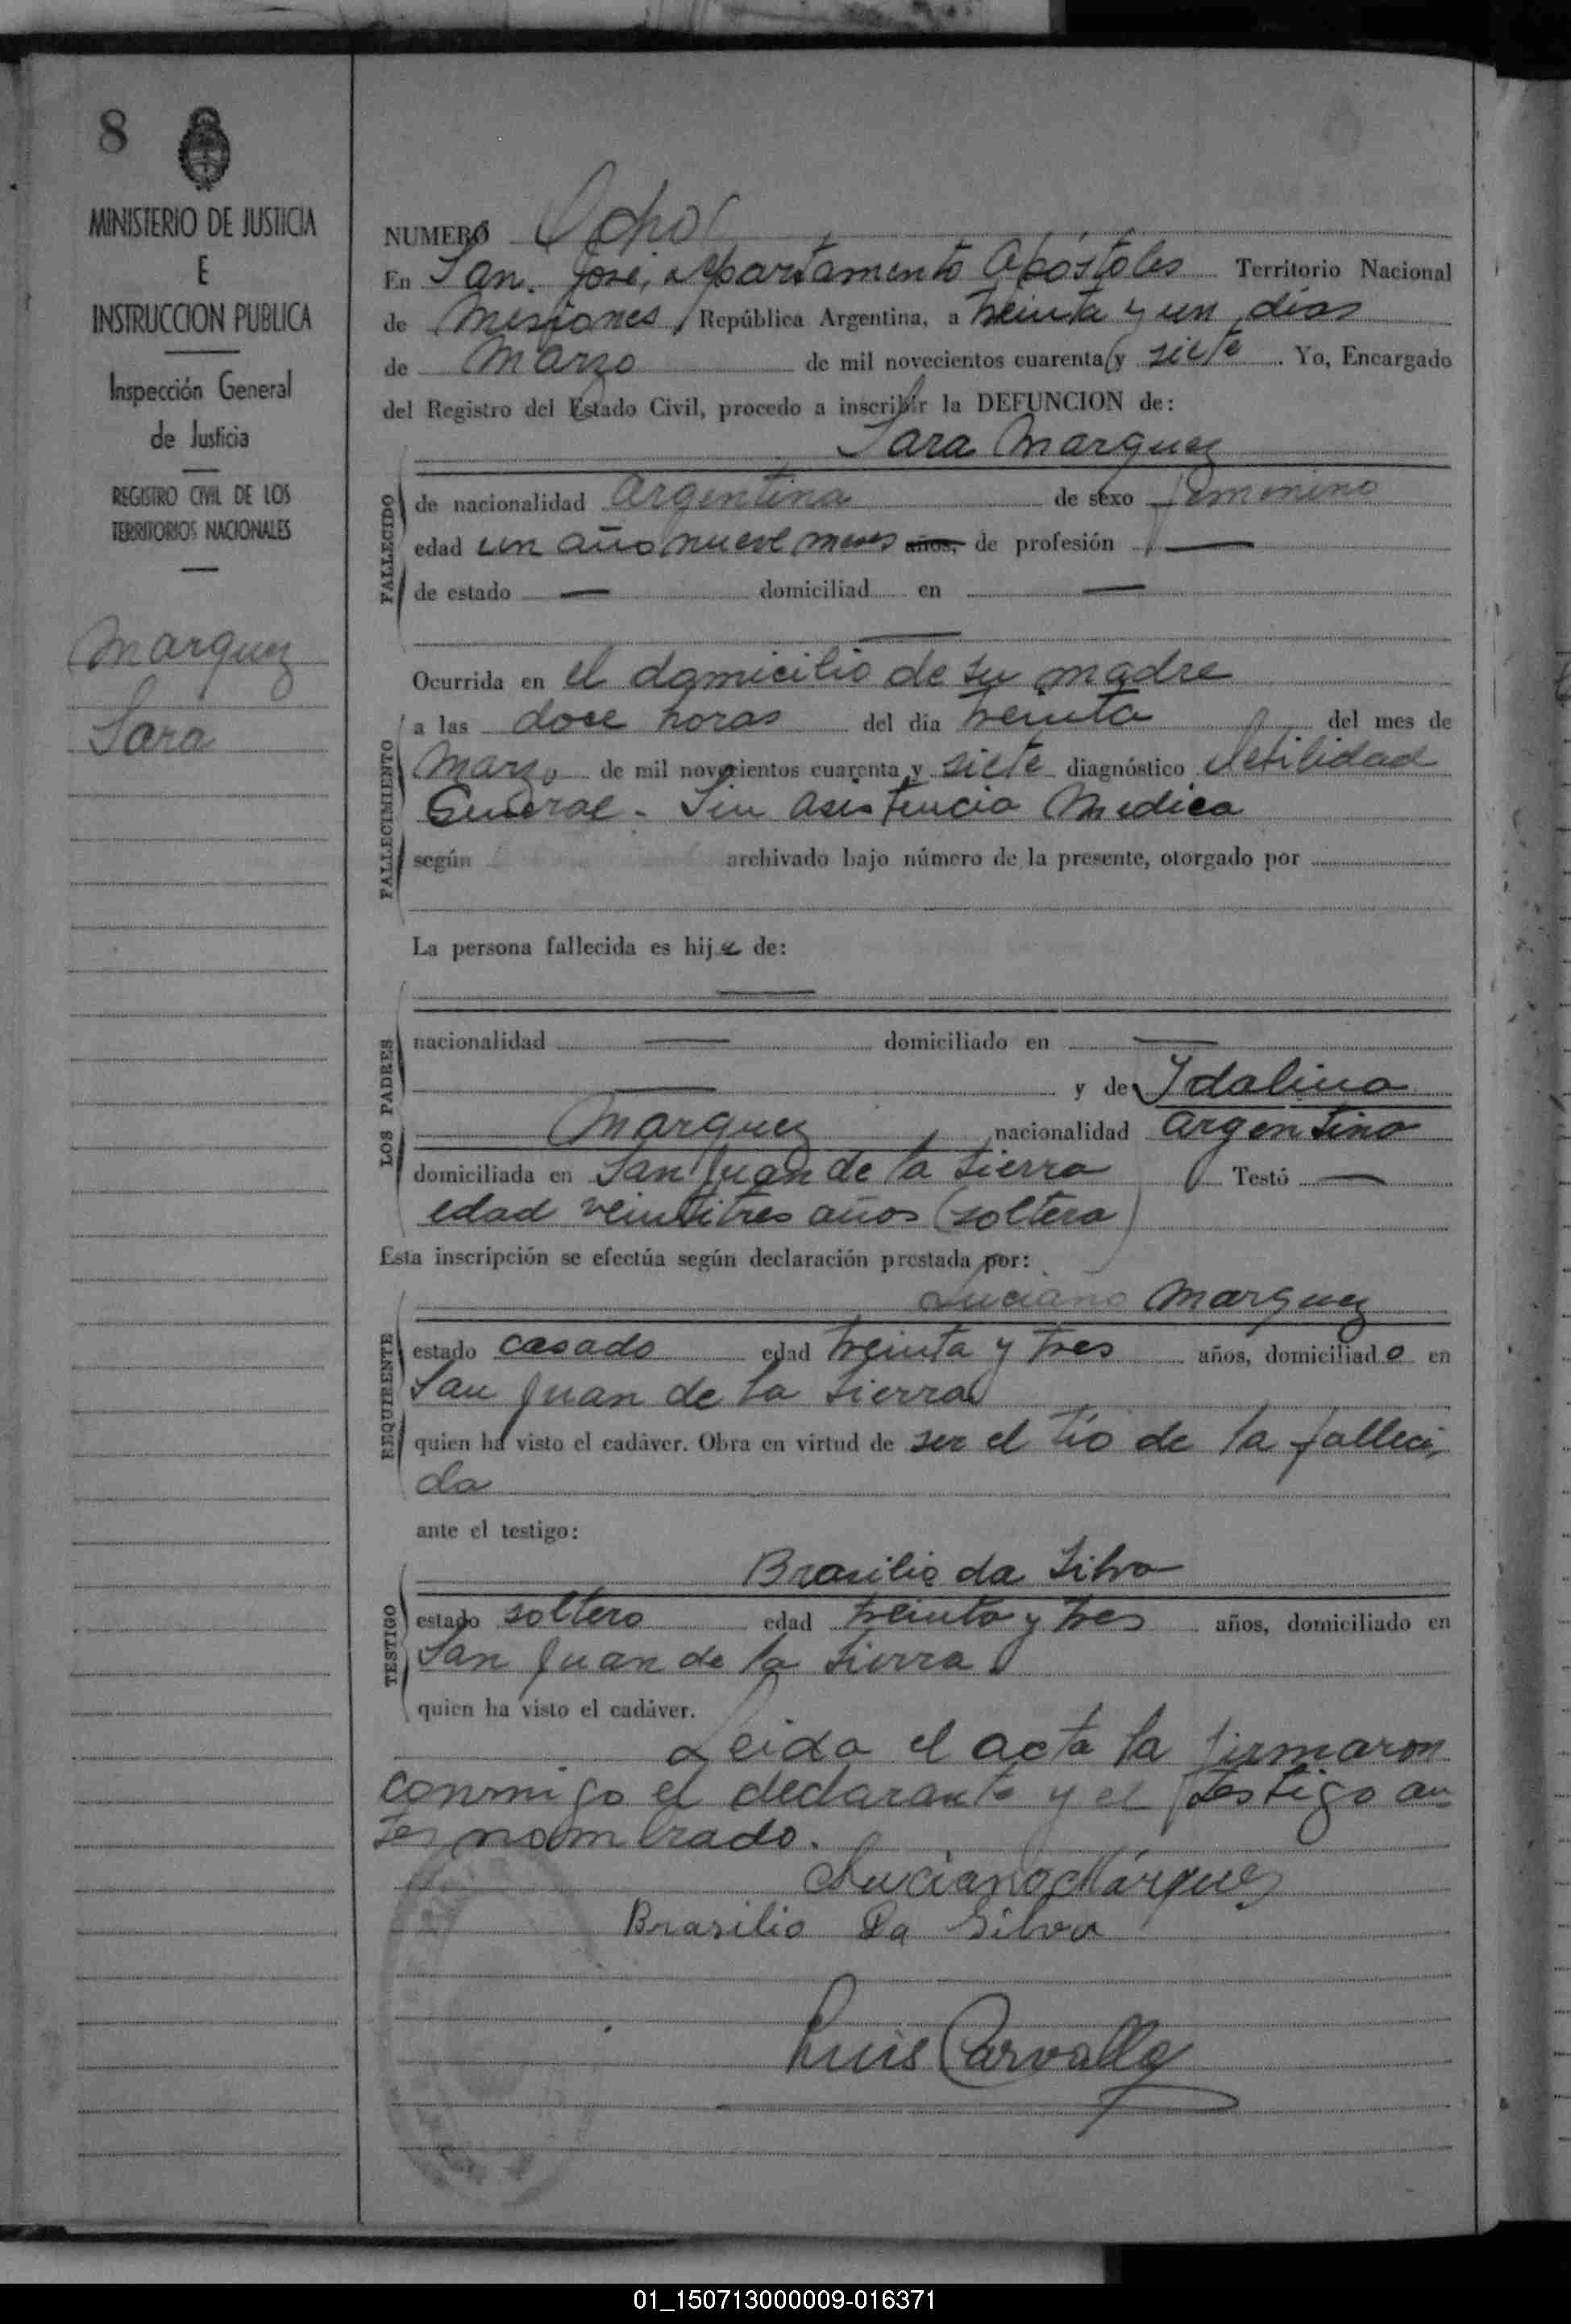 8
MINISTERIO DE JUSTICIA
E
INSTRUCCION PUBLICA
Inspección General
de Justicia
REGISTRO CIVIL DE LOS
TERRITORIOS NACIONALES
Marquez
Sara
NUMERO Ocho
En San José, departamento Apóstoles Territorio Nacional
de Misiones, República Argentina, a treinta y un días
de Marzo de mil novecientos cuarenta y siete. Yo, Encargado
del Registro del Estado Civil, procedo a inscribir la DEFUNCION de:
Sara Marquez
FALLECIDO
de nacionalidad Argentina de sexo femenino
edad un año nueve meses años, de profesión —
de estado — domiciliad en —
—
Ocurrida en el domicilio de su madre
FALLECIMIENTO
a las doce horas del día treinta del mes de
Marzo de mil novecientos cuarenta y siete diagnóstico Debilidad
General - Sin asistencia Medica
según archivado bajo número de la presente, otorgado por
La persona fallecida es hija de:
—
LOS PADRES
nacionalidad — domiciliado en —
— y de Idalina
Marquez nacionalidad argentina
domiciliada en San Juan de la Sierra Testó —
edad veintitres años (soltera)
Esta inscripción se efectúa según declaración prestada por:
Luciano Marquez
REQUIRENTE
estado casado edad treinta y tres años, domiciliado en
San Juan de la Sierra
quien ha visto el cadáver. Obra en virtud de ser el tío de la falleci-
da
ante el testigo:
Brasilio da Silva
TESTIGO
estado soltero edad treinta y tres años, domiciliado en
San Juan de la Sierra
quien ha visto el cadáver.
Leida el acta la firmaron
conmigo el declarante y el testigo an-
tes nombrado.
Luciano Márquez
Brasilio Da Silva
Luis Carvallo
01_150713000009-016371